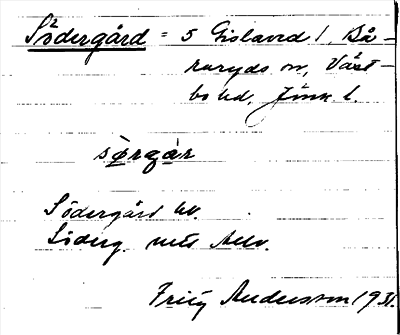 Södergård = 5 Gislaved 1, Bå-
raryds sn, Väst-
bo hd, Jönk. l.
sørgar
Södergård
Söderg.
Fritz Andersson 1931.